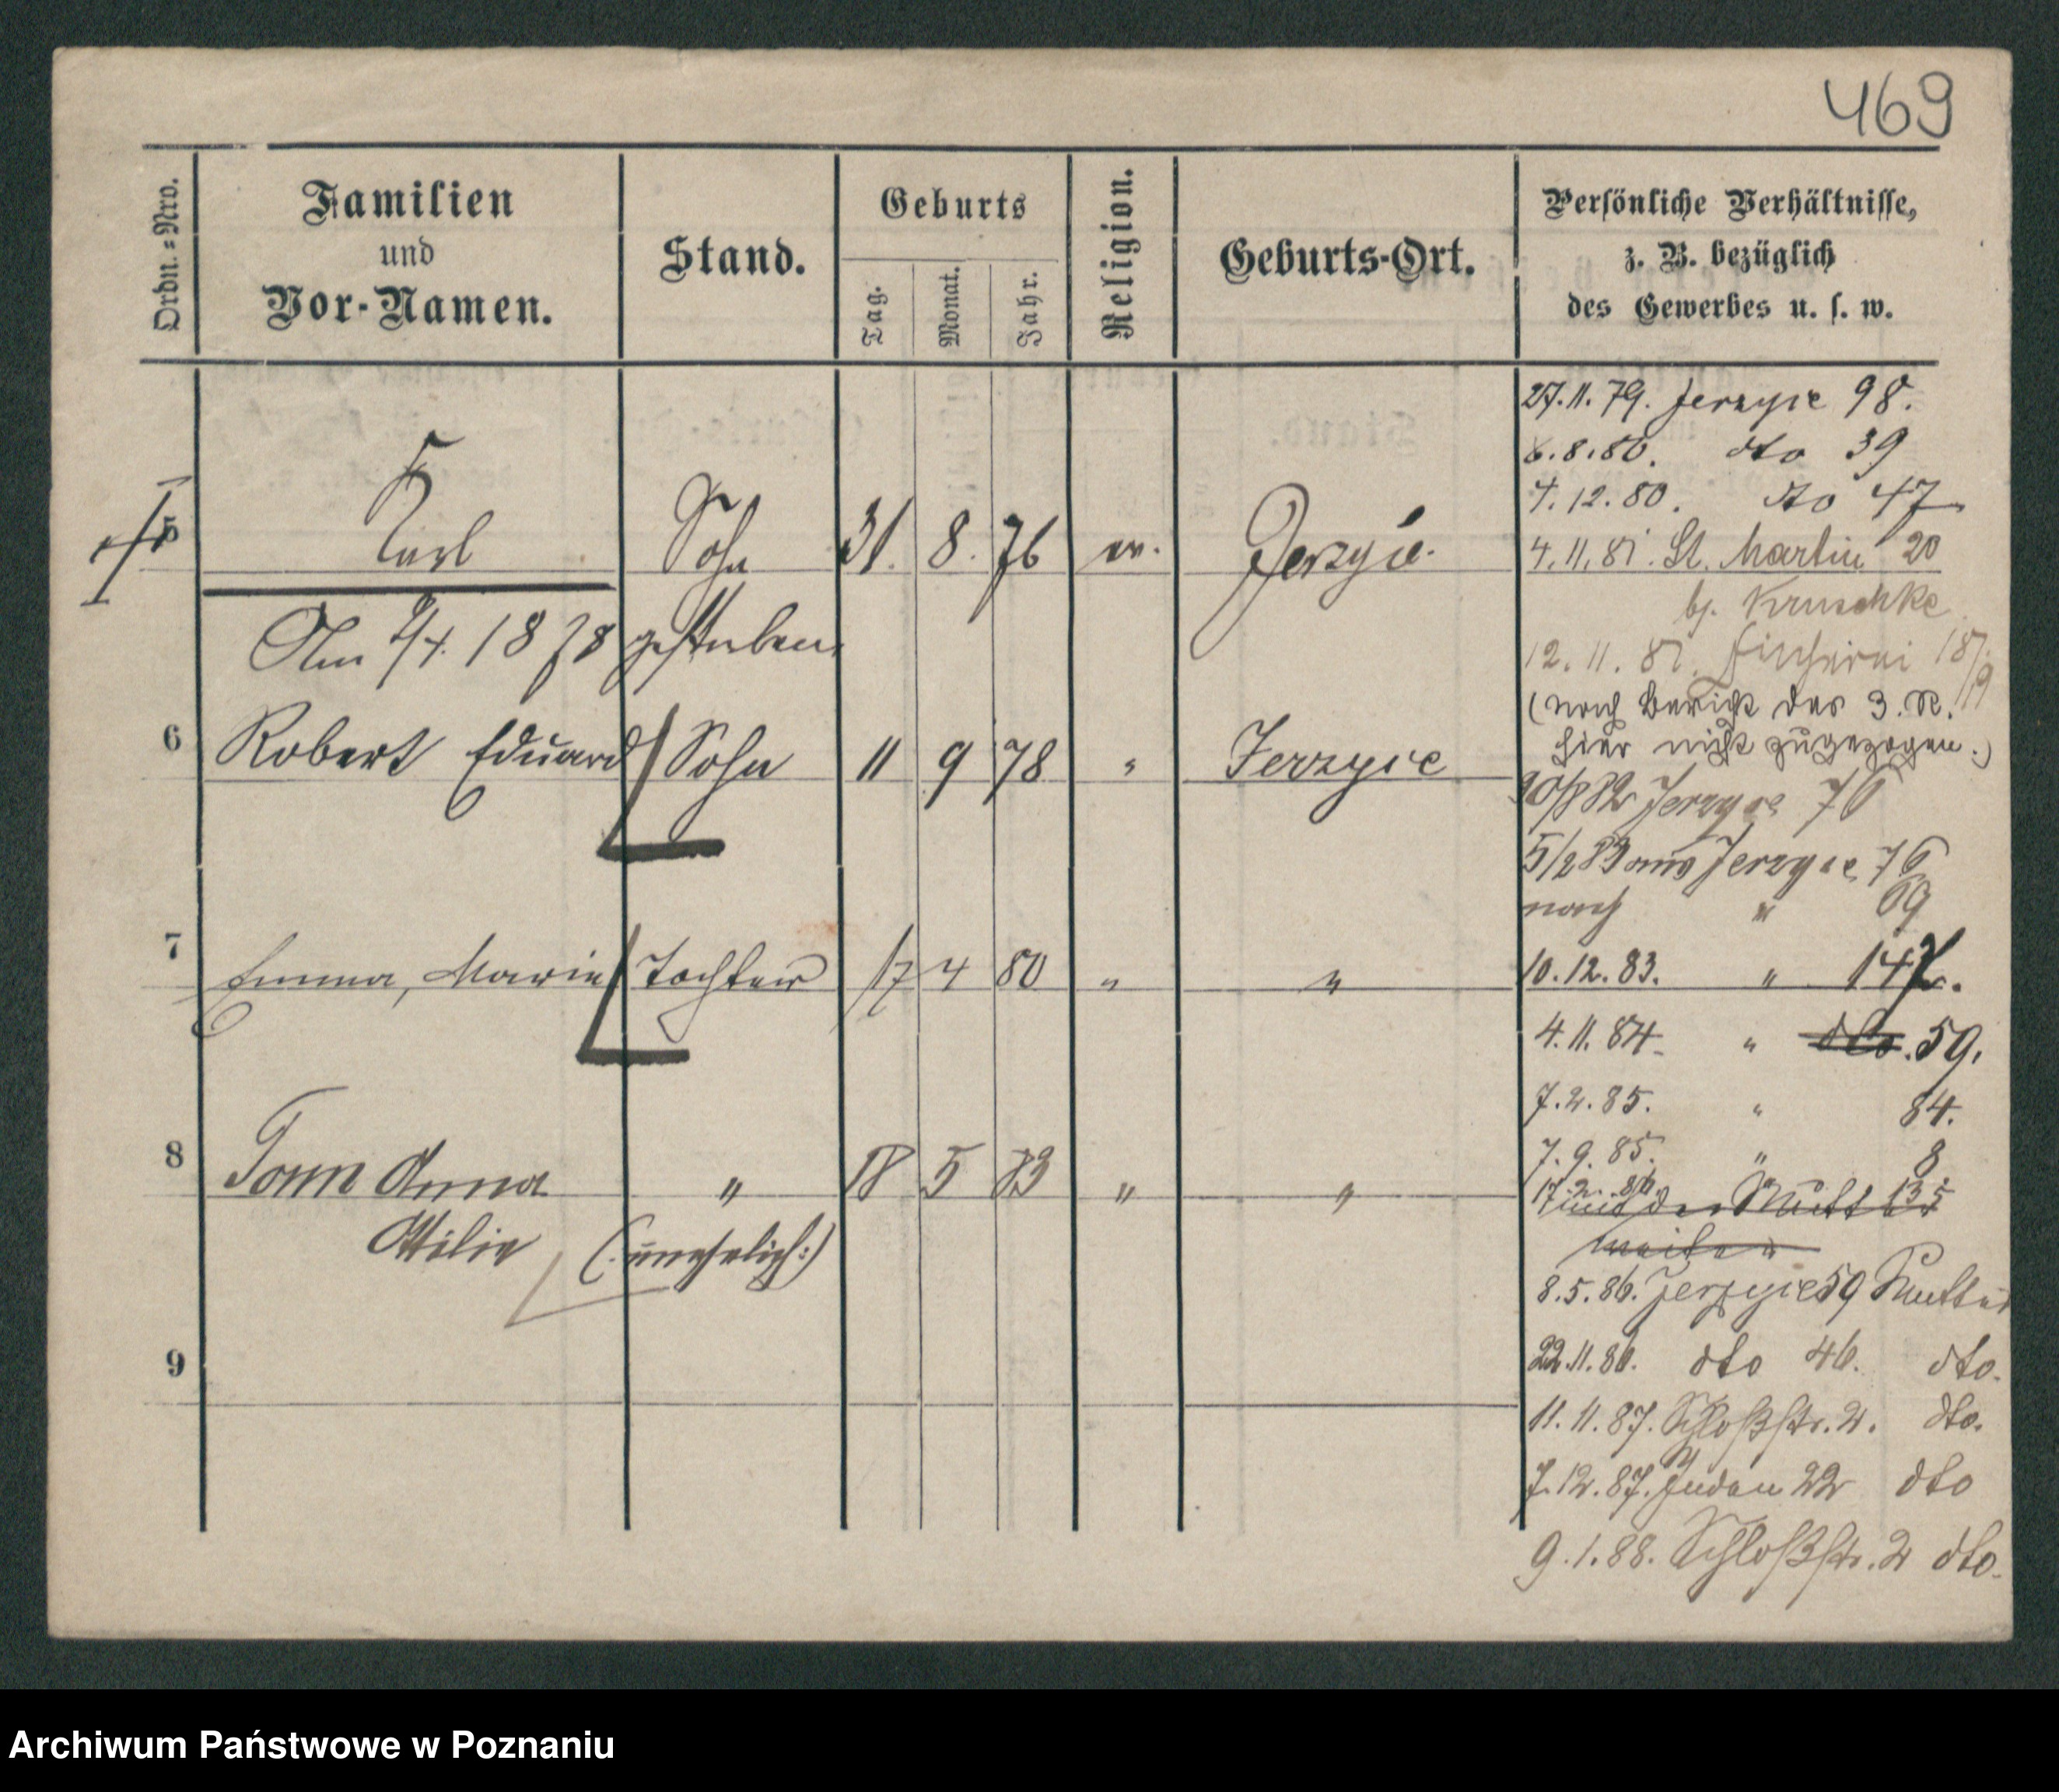 469
Ordn.-Nro.
Familien
und
Vor-Namen.
Stand.
Geburts
Tag.
Monat.
Jahr.
Religion.
Geburts-Ort.
Persönliche Verhältnisse,
z. B. bezüglich
des Gewerbes u. s. w.
27.11.79. Jerzyce 98.
6.8.80. dto 39
4.12.80. dto 47
5 Karl Sohn 31. 8. 76 ev. Jerzyce.
4.11.81. St. Martin 20
bj. Kruschke
Am 2/4. 1878 gestorben.
12. 11. 81. Fischerei 18/19
(nach Bericht des 3. R.
hier nicht zugezogen.)
6 Robert Eduard Sohn 11 9 78 " Jerzyce
30/8 82 Jerzyce 76
5/2 83 aus Jerzyce 76
nach " 69
7 Emma, Marie Tochter 17 4 80 " "
10.12.83. " 147.
4.11.84. " dto. 59.
7.2.85. " 84.
7.9.85. " 8
8 Tonn Anna " 18 5 83 " "
17.2.86. " 135
und der Mutter
weiter
Ottilie (:unehelich:)
8.5.86. Jerzyce 59 Mutter
22.11.86. dto 46. dto.
9
11.11.87. Schloßstr. 2. dto.
7.12.87. Juden 22 dto
9.1.88. Schloßstr. 2 dto.
Archiwum Państwowe w Poznaniu